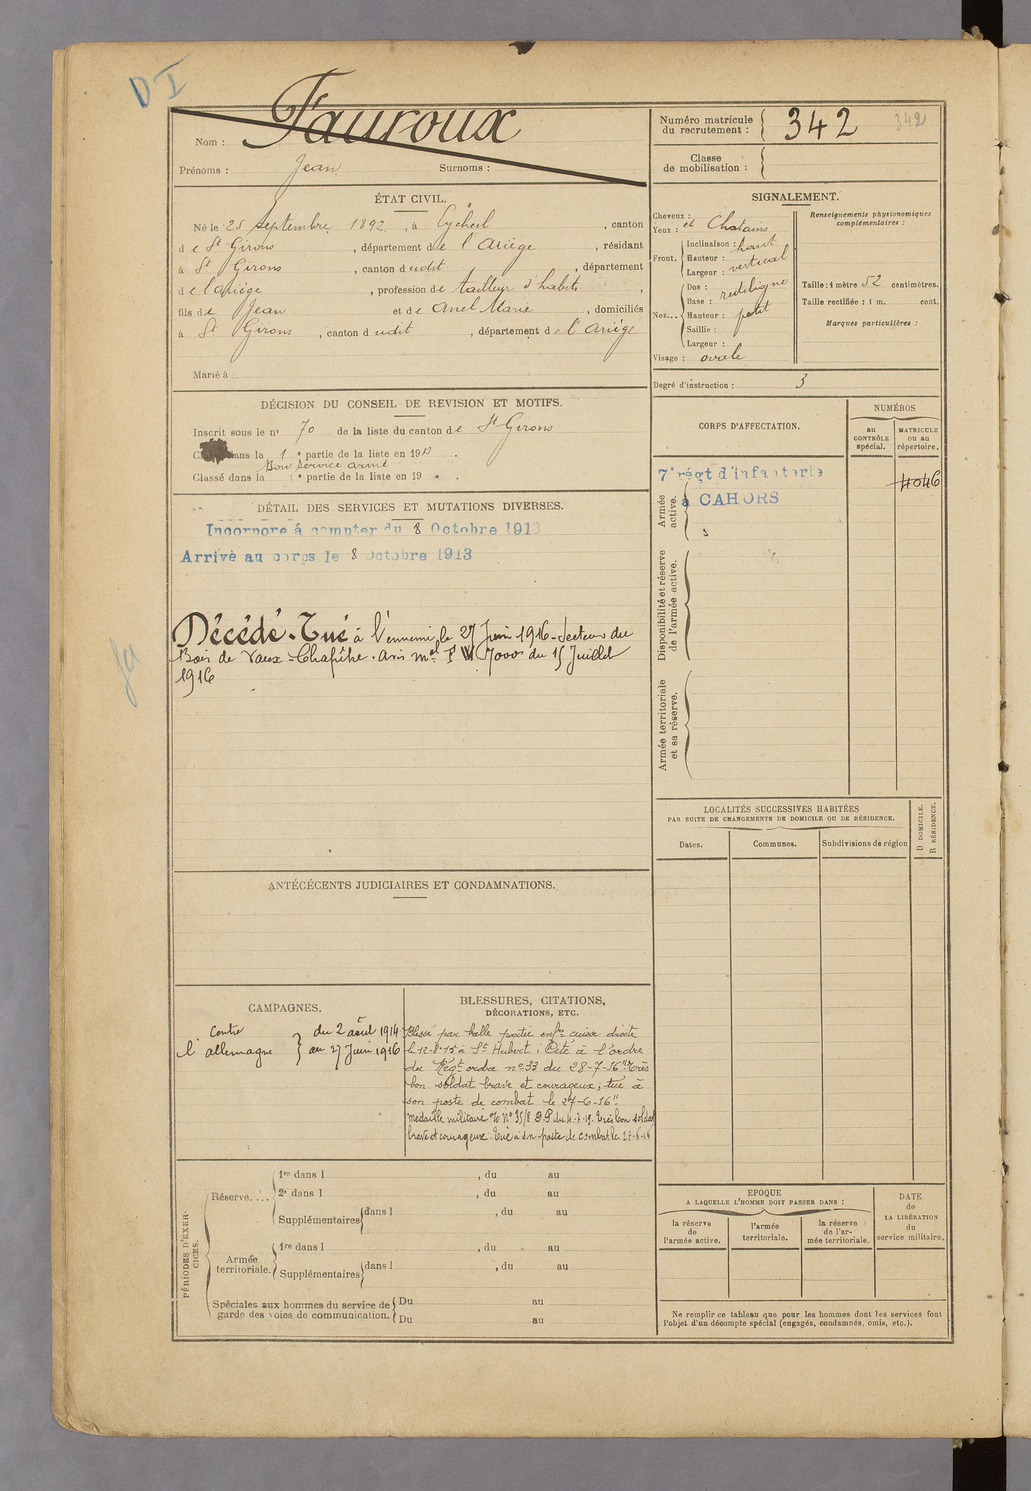 D I
Fauroux
Nom :
Prénoms : Jean Surnoms :
Numéro matricule du recrutement : 342 342
Classe de mobilisation :
ÉTAT CIVIL.
Né le 25 septembre 1892, à Eycheil, canton
de St Girons, département de l'Ariège, résidant
à St Girons, canton dudit, département
de l'ariège, profession de tailleur d'habits,
fils de Jean et de Anel Marie, domiciliés
à St Girons, canton dudit, département de l'Ariège
Marié à
SIGNALEMENT.
Cheveux :
Yeux : et Chatains
Front. Inclinaison : haut
Hauteur : vertical
Largeur :
Nez... Dos : rectiligne
Base :
Hauteur : petit
Saillie :
Largeur :
Visage : ovale
Renseignements physionomiques complémentaires :
Taille : 1 mètre 52 centimètres.
Taille rectifiée : 1 m. cent.
Marques particulières :
Degré d'instruction : 3
DÉCISION DU CONSEIL DE REVISION ET MOTIFS.
Inscrit sous le n° 70 de la liste du canton de St Girons
dans la 1 e partie de la liste en 19
Bon service armé
Classé dans la e partie de la liste en 19 .
DÉTAIL DES SERVICES ET MUTATIONS DIVERSES.
Incorporé à compter du 8 Octobre 1913
Arrivé au corps le 8 Octobre 1913
Décédé. Tué à l'ennemi le 27 Juin 1916 - Secteur du
Bois de Vaux-Chapître. avis mel 7000 du 15 Juillet
1916
CORPS D'AFFECTATION.
NUMÉROS
au CONTRÔLE spécial.
MATRICULE ou au répertoire.
Armée active.
7e régt d'infanterie
à CAHORS
4046
Disponibilité et réserve de l'armée active.
Armée territoriale et sa réserve.
LOCALITÉS SUCCESSIVES HABITÉES
PAR SUITE DE CHANGEMENTS DE DOMICILE OU DE RÉSIDENCE.
Dates. Communes. Subdivisions de région
D DOMICILE.
R RÉSIDENCE.
ANTÉCÉCENTS JUDICIAIRES ET CONDAMNATIONS.
CAMPAGNES.
Contre l'allemagne } du 2 août 1914
au 27 Juin 1916
BLESSURES, CITATIONS,
DÉCORATIONS, ETC.
Blessé par balle partie enfre cuisse droite
le 12-8-15 à St Hubert ; Cité à l'ordre
du Régt ordre n° 33 du 28-7-16 "Très
bon soldat brave et courageux ; tué à
son poste de combat le 27-6-16"
Médaille militaire Très bon soldat
brave et courageux. Tué à son poste de combat le 27-6-16
PÉRIODES D'EXERCICES.
Réserve.... 1re dans l , du au
2e dans l , du au
Supplémentaires dans l , du au
Armée territoriale. 1re dans l , du au
Supplémentaires dans l , du au
Spéciales aux hommes du service de Du au
garde des voies de communication. Du au
EPOQUE
A LAQUELLE L'HOMME DOIT PASSER DANS :
la réserve de l'armée active.
l'armée territoriale.
la réserve de l'armée territoriale.
DATE
de
LA LIBÉRATION
du
service militaire.
Ne remplir ce tableau que pour les hommes dont les services font
l'objet d'un décompte spécial (engagés, condamnés, omis, etc.).